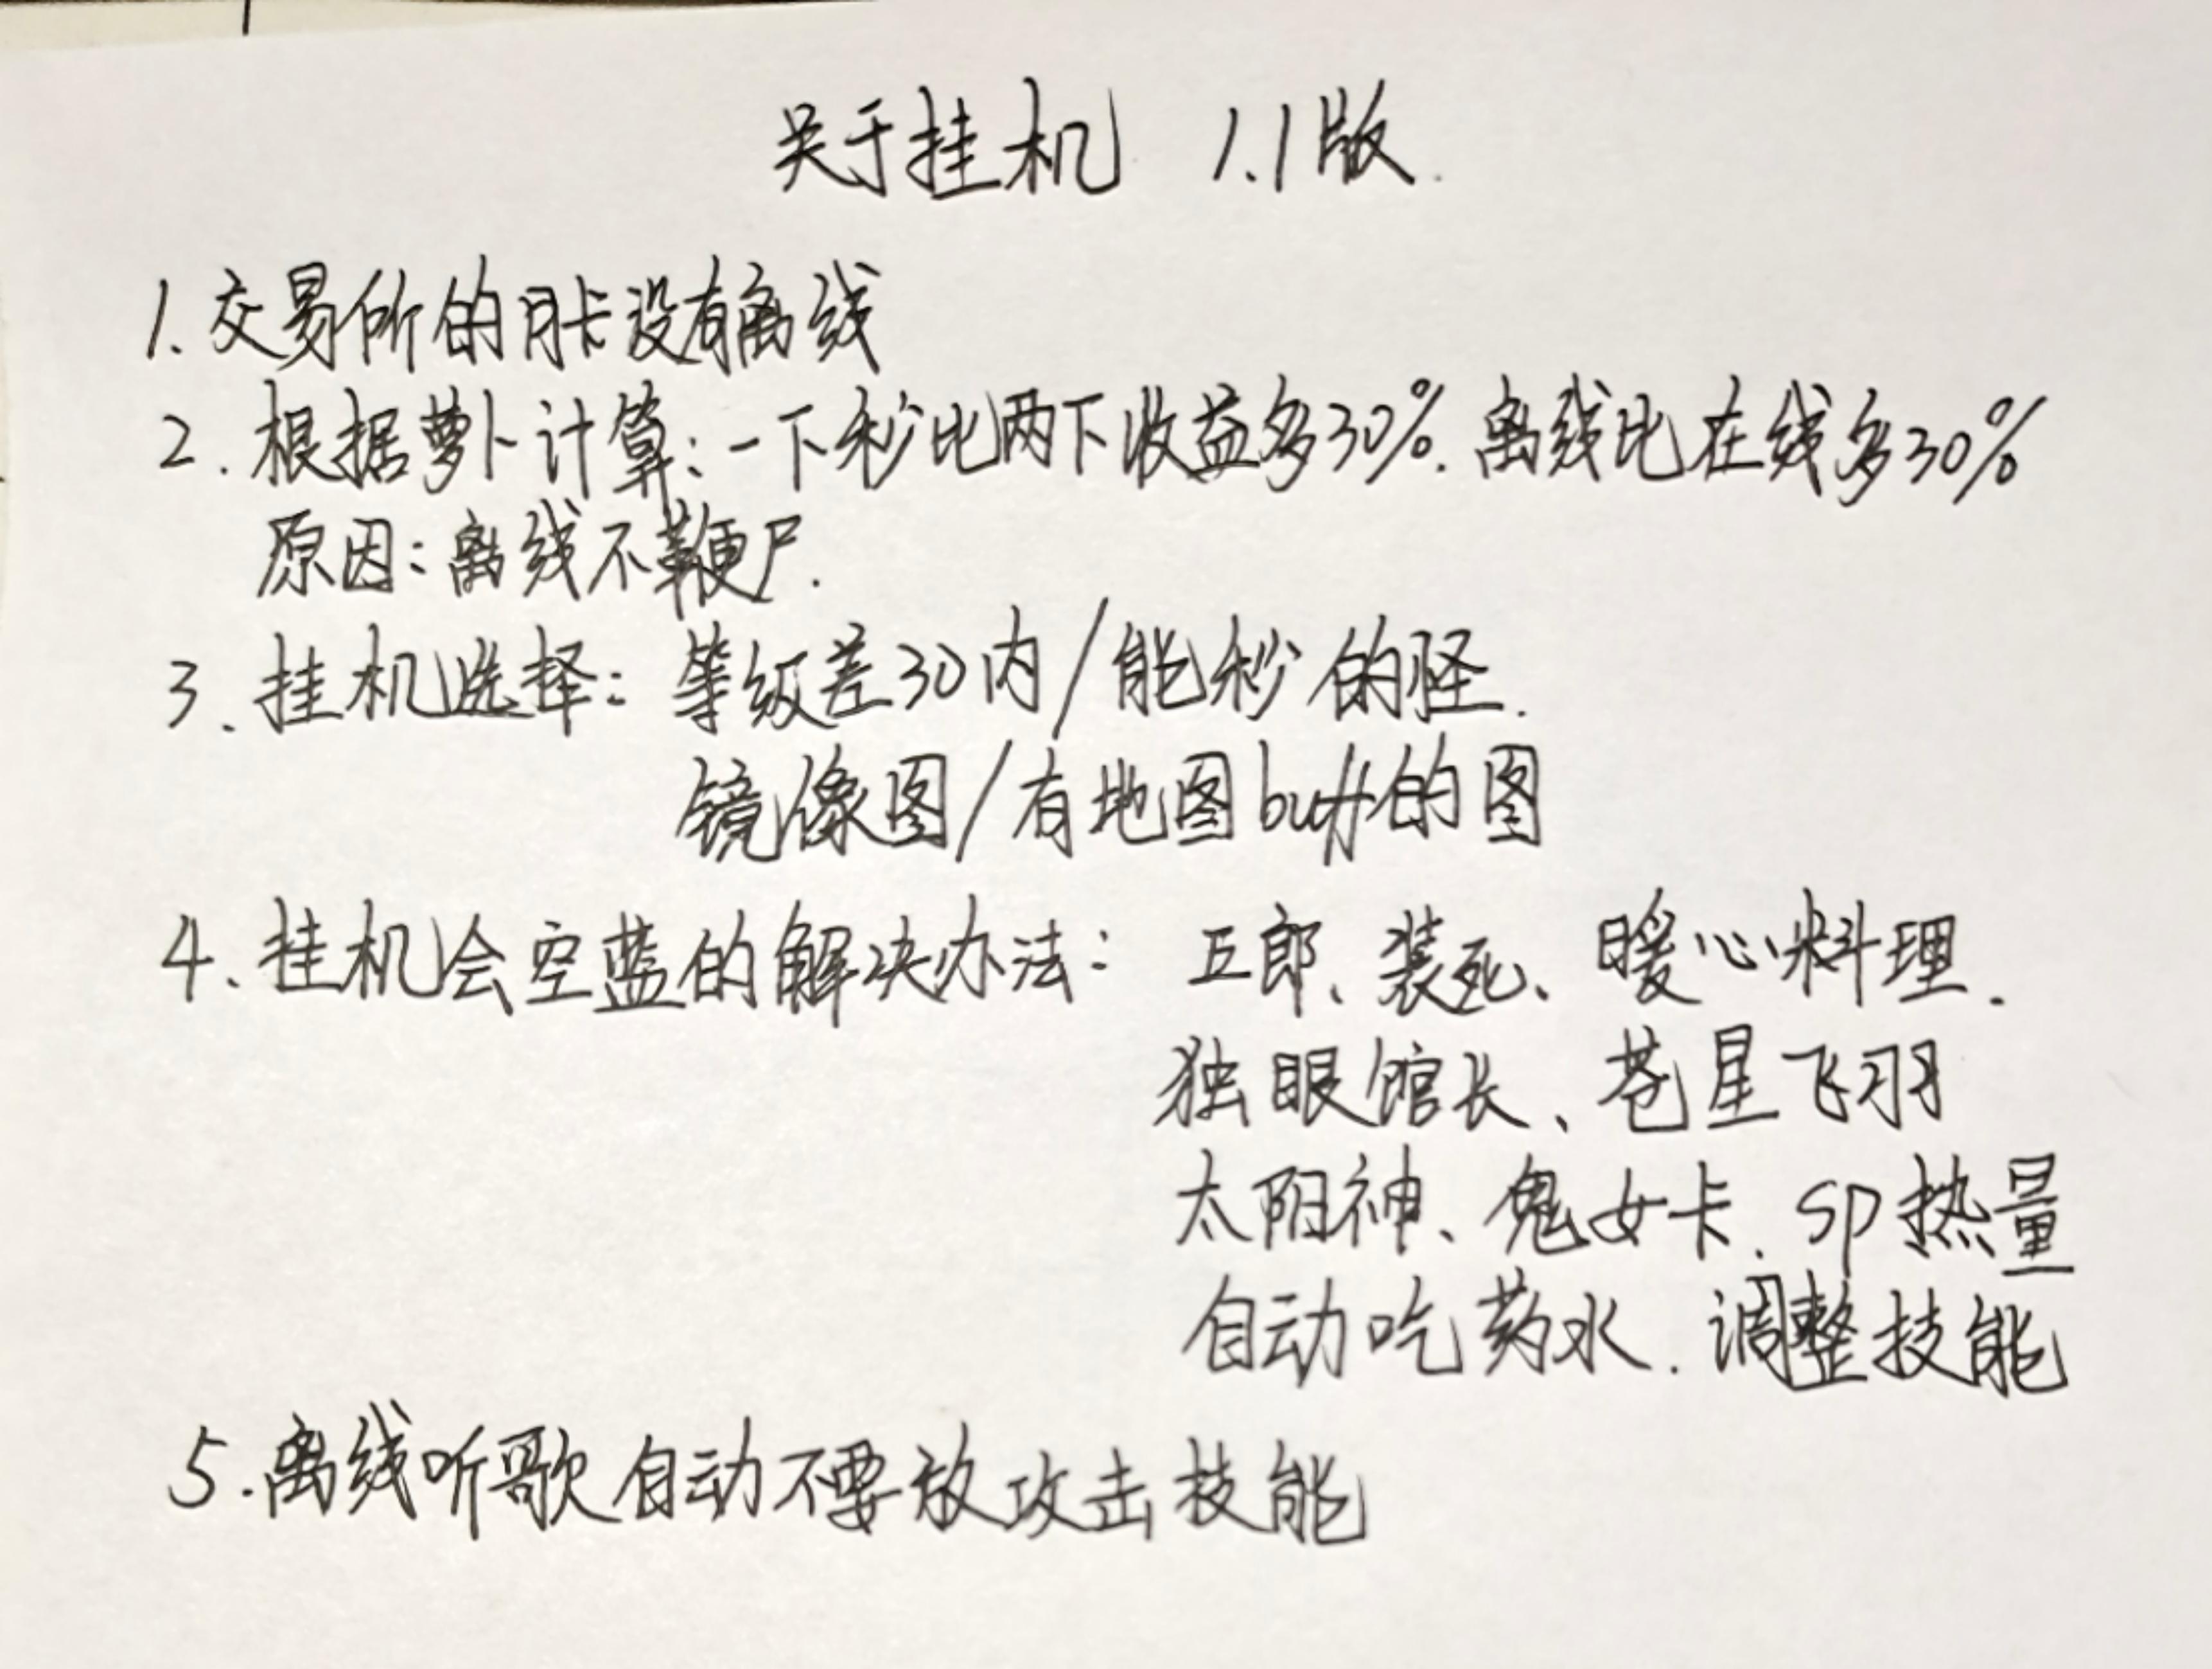 关于挂机 1.1版.
1.交易所的月卡没有离线
2.根据萝卜计算:一下秒比两下收益多30%.离线比在线多30%
原因:离线不鞭尸.
3.挂机选择:等级差30内/能秒的怪.
镜像图/有地图buff的图
4.挂机会空蓝的解决办法:五郎、装死、暖心料理.
独眼馆长、苍星飞羽
太阳神、鬼女卡.sp热量
自动吃药水.调整技能
5.离线听歌自动不要放攻击技能